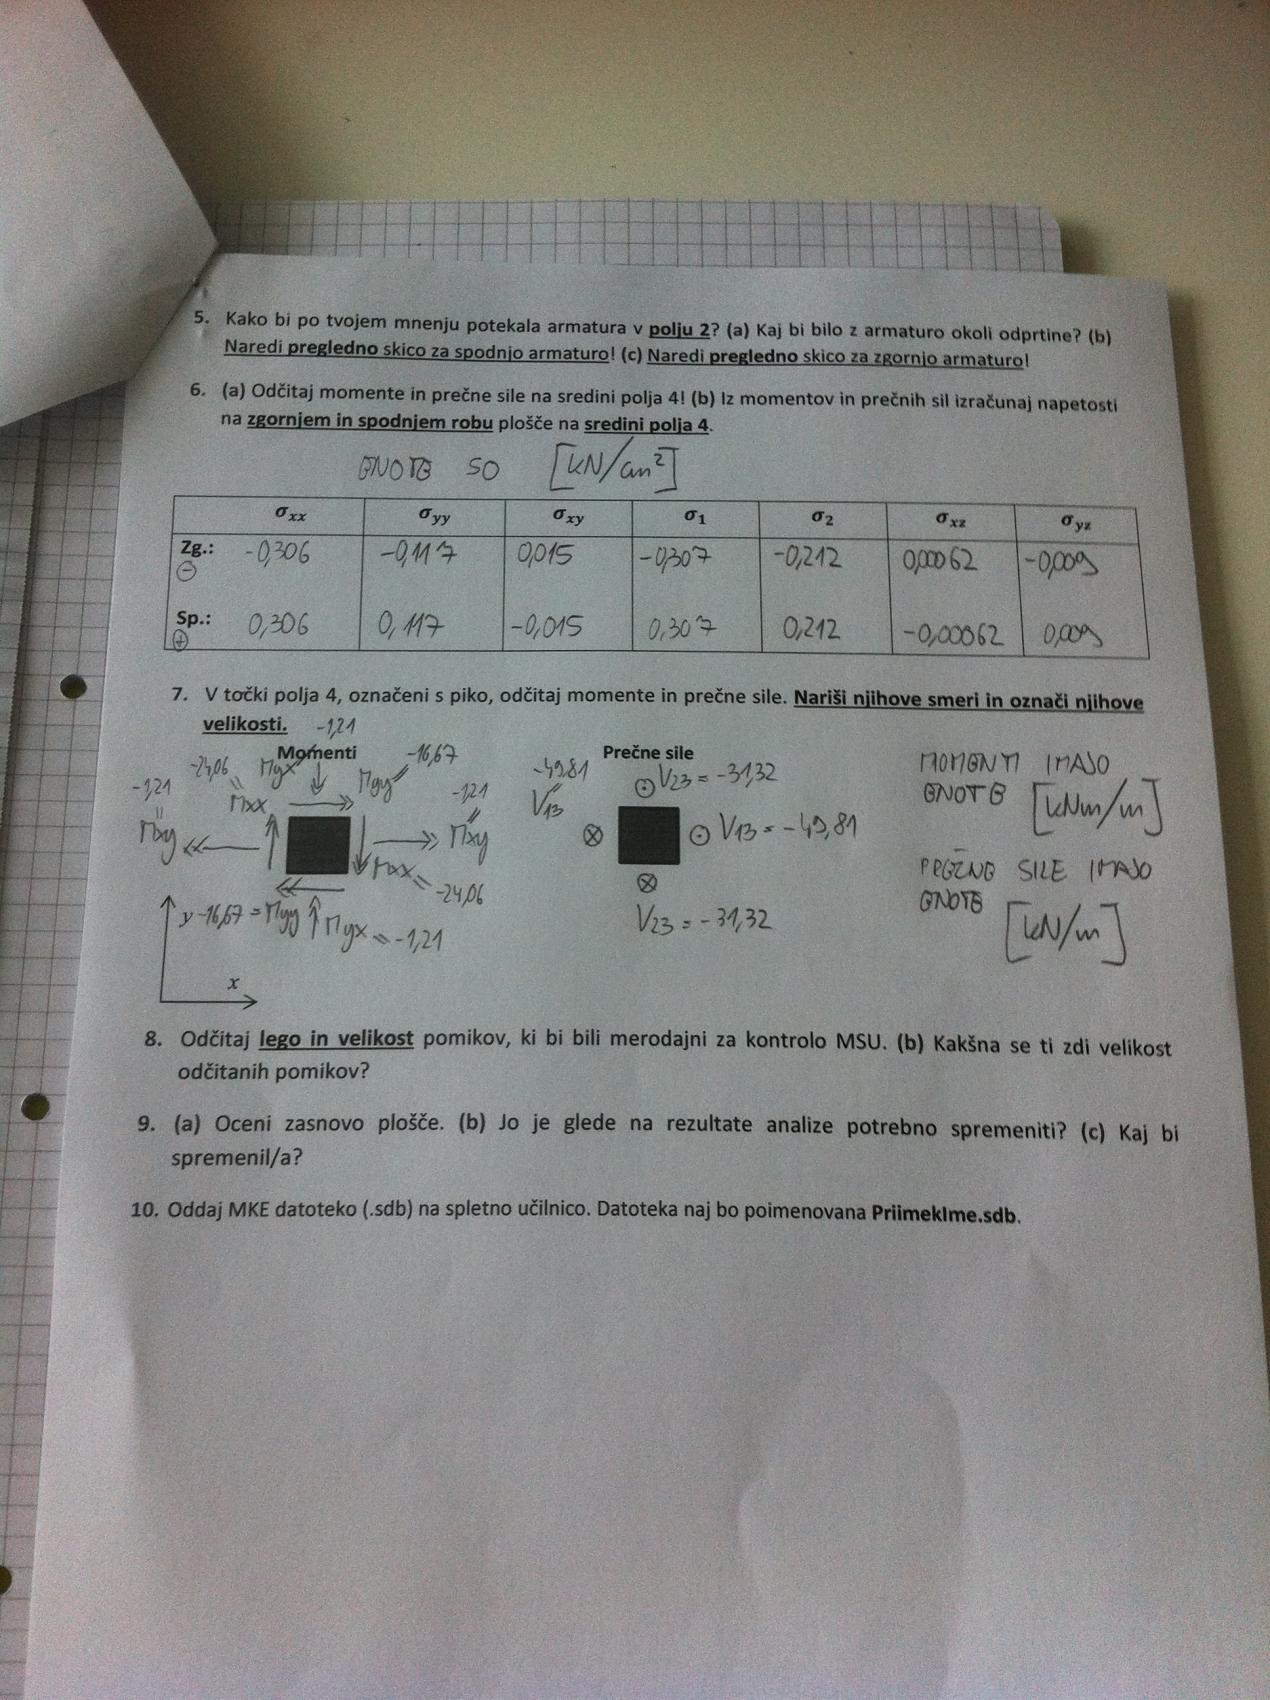 5. Kako bi po tvojem mnenju potekala armatura v polju 2? (a) Kaj bi bilo z armaturo okoli odprtine? (b)
Naredi pregledno skico za spodnjo armaturo! (c) Naredi pregledno skico za zgornjo armaturo!
6. (a) Odčitaj momente in prečne sile na sredini polja 4! (b) Iz momentov in prečnih sil izračunaj napetosti
na zgornjem in spodnjem robu plošče na sredini polja 4.
ENOTE SO [kN/cm²]
σxx σyy σxy σ1 σ2 σxz σyz
Zg.: -0,306 -0,117 0,015 -0,307 -0,212 0,00062 -0,009
⊖
Sp.: 0,306 0,117 -0,015 0,307 0,212 -0,00062 0,009
⊕
7. V točki polja 4, označeni s piko, odčitaj momente in prečne sile. Nariši njihove smeri in označi njihove
velikosti. -1,21
Momenti Prečne sile
-24,06 Myx -16,67
Mxx Myy
-1,21 Mxy
-1,21 Mxy
Mxx = -24,06
-16,67 = Myy Myx = -1,21
y
x
-49,81 V13
V23 = -31,32
V13 = -49,81
V23 = -31,32
MOMENTI IMAJO
ENOTE [kNm/m]
PREČNE SILE IMAJO
ENOTE
[kN/m]
8. Odčitaj lego in velikost pomikov, ki bi bili merodajni za kontrolo MSU. (b) Kakšna se ti zdi velikost
odčitanih pomikov?
9. (a) Oceni zasnovo plošče. (b) Jo je glede na rezultate analize potrebno spremeniti? (c) Kaj bi
spremenil/a?
10. Oddaj MKE datoteko (.sdb) na spletno učilnico. Datoteka naj bo poimenovana PriimekIme.sdb.